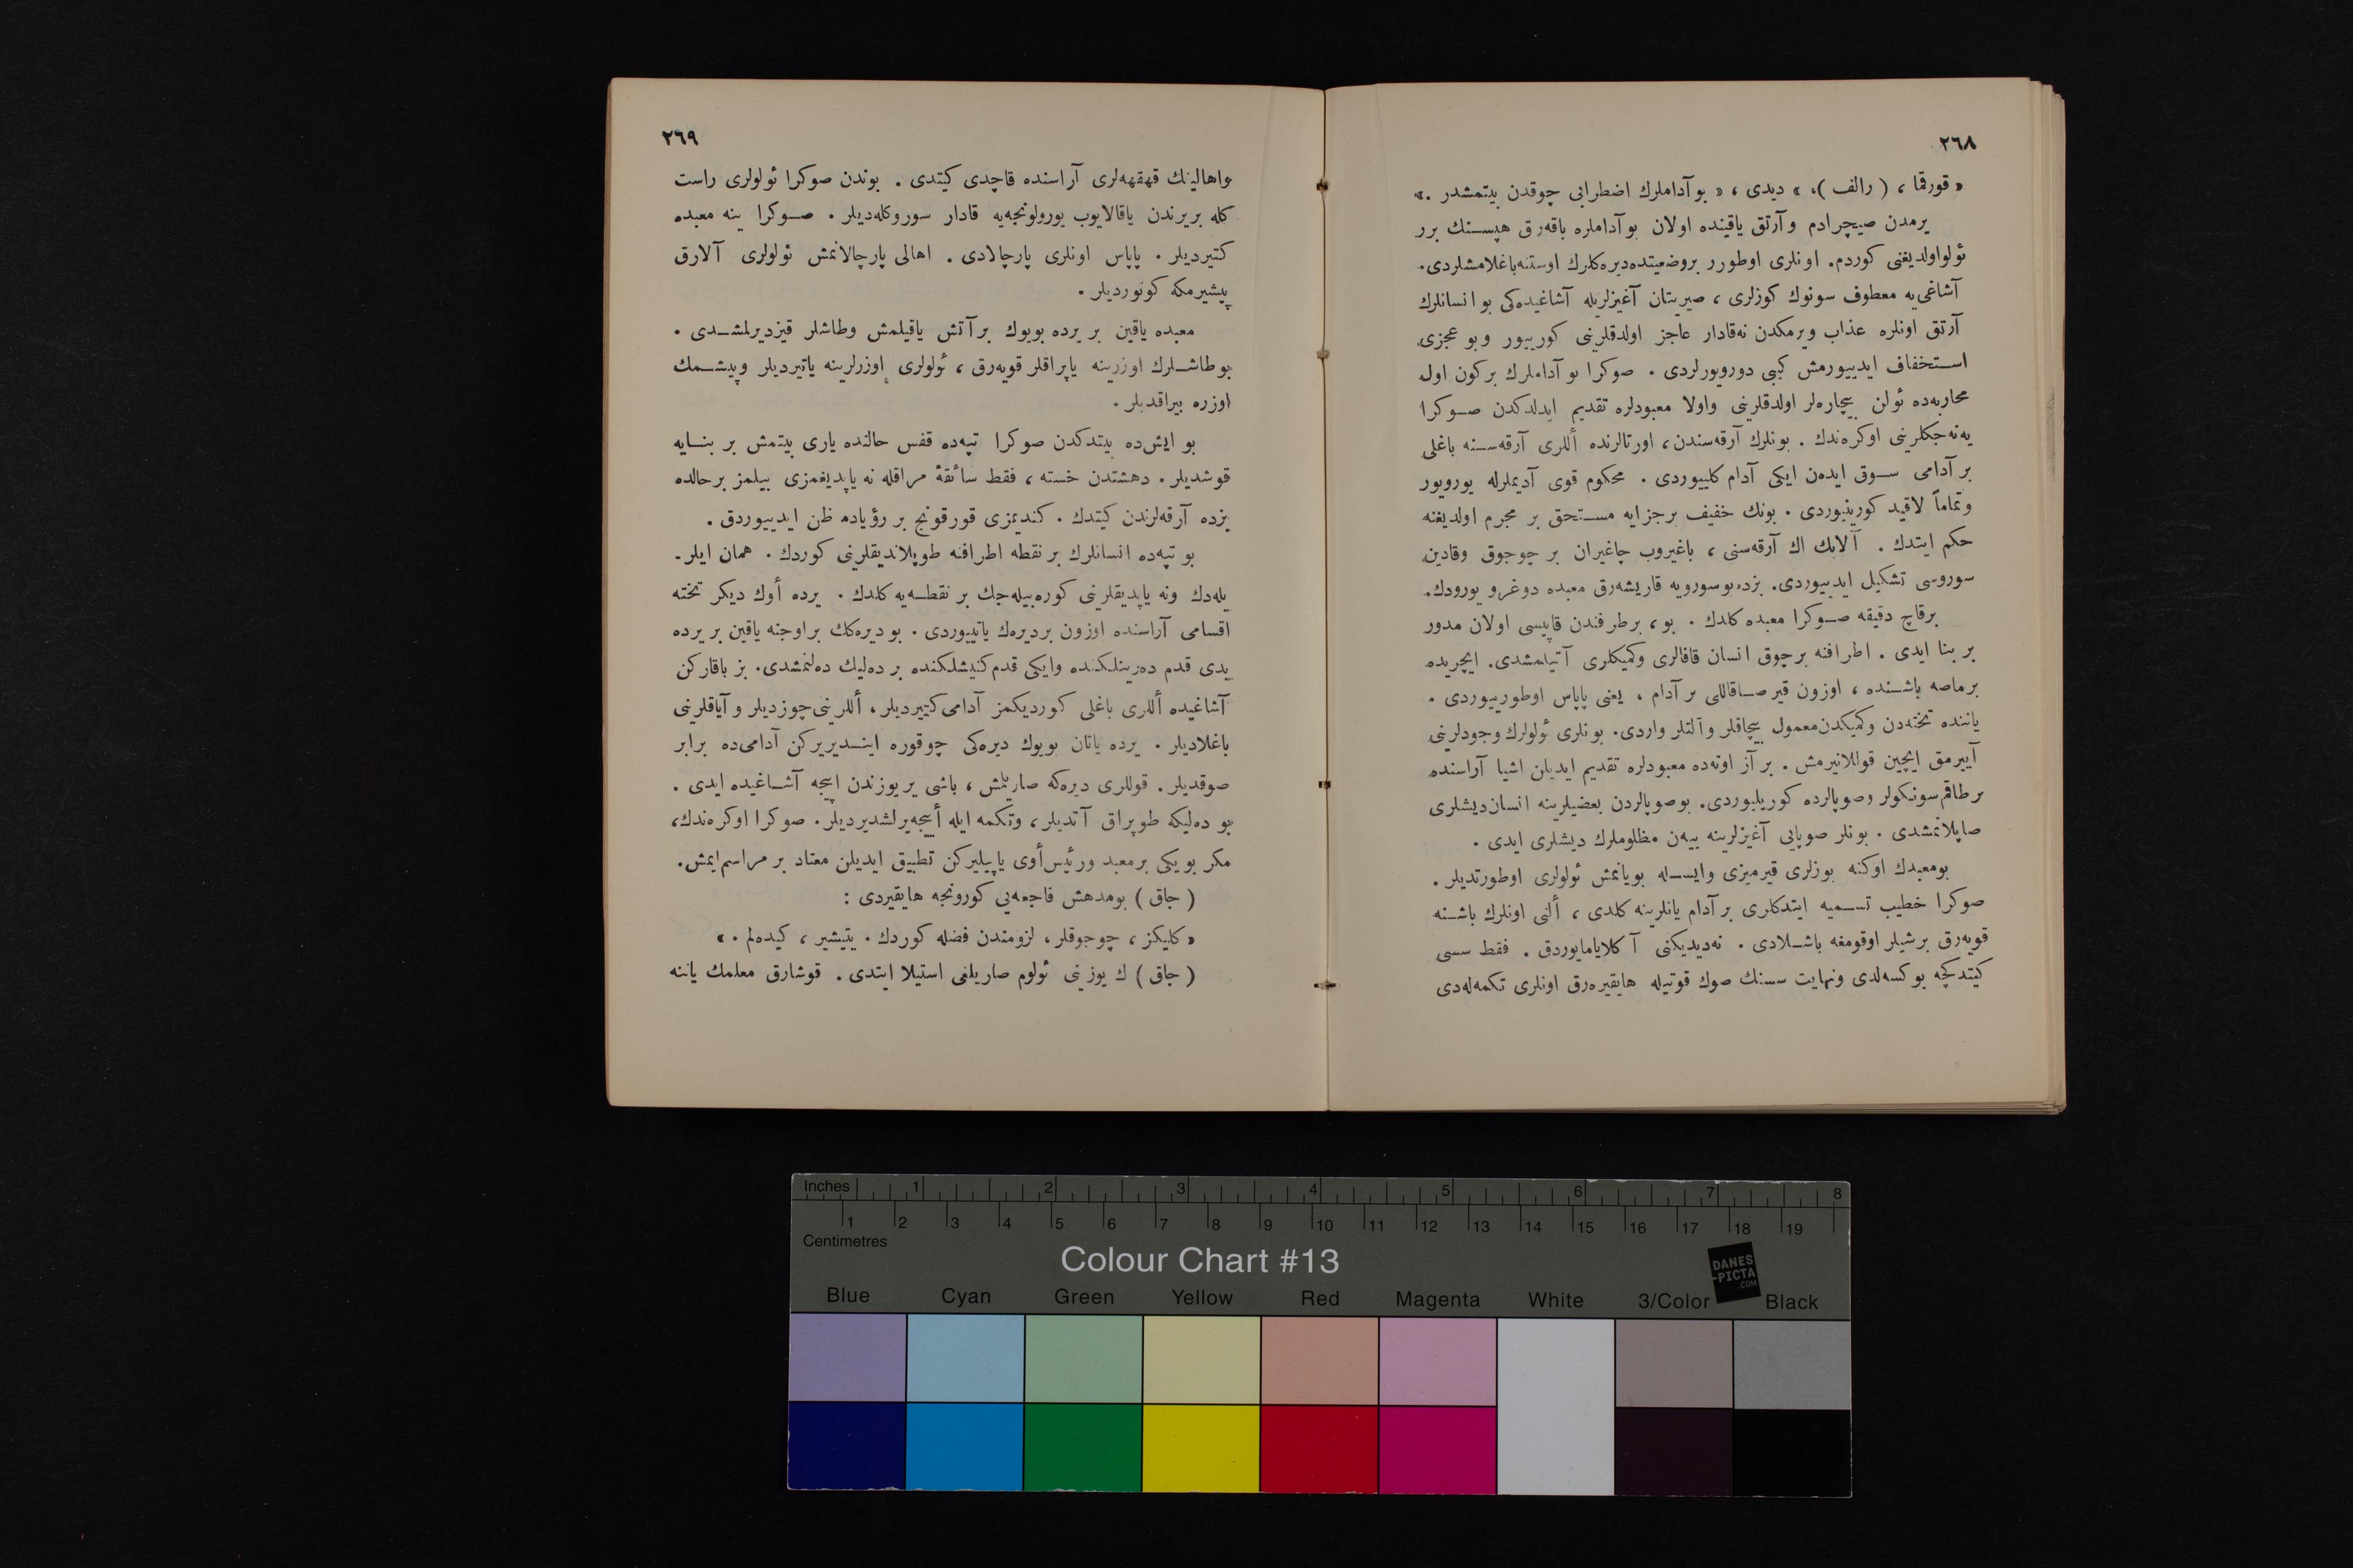 ٢٦٨
« قورقما ، ( رالف )، » ديدى ، « بو آداملرك اضطرابى چوقدن بيتمشدر .»
يرمدن صيچرادم و آرتق ياقينده اولان بو آداملره باقه‌رق هپسنك برر
ئولو اولديغنى كوردم. اونلرى اوطورر بر وضعيتده ديره‌كلرك اوستنه باغلامشلردى.
آشاغى‌يه معطوف سونوك كوزلرى ، صيريتان آغيزلريله آشاغيده‌كى بو انسانلرك
آرتق اونلره عذاب ويرمكدن نه‌قادار عاجز اولدقلرينى كورييور و بو عجزى
استخفاف ايدييورمش كبى دورويورلردى . صوكرا بو آداملرك بركون اول
محاربه‌ده ئولن بيچاره‌لر اولدقلرينى واولا معبودلره تقديم ايدلدكدن صوكرا
يه‌نه‌جكلرينى اوكره‌ندك . بونلرك آرقه‌سندن، اورتالرنده أللرى آرقه‌سنه باغلى
بر آدامى سوق ايده‌ن ايكى آدام كلييوردى . محكوم قوى آديملرله يورويور
وتماماً لاقيد كورينيوردى . بونك خفيف برجزايه مستحق بر مجرم اولديغنه
حكم ايتدك . آلايك اك آرقه‌سنى ، باغيروب چاغيران بر چوجوق وقادين
سوروسى تشكيل ايدييوردى. بزده بو سورويه قاريشه‌رق معبده دوغرو يورودك.
برقاچ دقيقه صوكرا معبده كلدك . بو ، بر طرفندن قاپيسى اولان مدور
بر بنا ايدى . اطرافنه برچوق انسان قافالرى وكميكلرى آتيلمشدى. ايچريده
بر ماصه باشنده ، اوزون قير صاقاللى بر آدام ، يعنى پاپاس اوطورييوردى .
ياننده تخته‌دن وكميكدن معمول بيچاقلر و آلتلر واردى. بونلرى ئولولرك وجودلرينى
آييرمق ايچين قوللانيرمش . بر آز اوته‌ده معبودلره تقديم ايديلن اشيا آراسنده
بر طاقم سونكولر وصوپالرده كوريليوردى. بو صوپالردن بعضيلرينه انسان ديشلرى
صاپلانمشدى . بونلر صوپايى آغيزلرينه ييه‌ن مظلوملرك ديشلرى ايدى .
بو معبدك اوكنه يوزلرى قيرميزى وايسله بويانمش ئولولرى اوطورتديلر .
صوكرا خطيب تسميه ايتدكلرى بر آدام يانلرينه كلدى ، ألنى اونلرك باشنه
قويه‌رق برشيلر اوقومغه باشلادى . نه‌ديديكنى آكلايامايوردق . فقط سسى
كيتدكچه يوكسه‌لدى ونهايت سسنك صوك قوتيله هايقيره‌رق اونلرى تكمه‌له‌دى
٢٦٩
واهالينك قهقهه‌لرى آراسنده قاچدى كيتدى . بوندن صوكرا ئولولرى راست
كله بر يرندن ياقالايوب يورولونجه‌يه قادار سوروكله‌ديلر . صوكرا ينه معبده
كتيرديلر . پاپاس اونلرى پارچالادى . اهالى پارچالانمش ئولولرى آلارق
پيشيرمكه كوتورديلر .
معبده ياقين بر يرده بويوك بر آتش ياقيلمش وطاشلر قيزديرلمشدى .
بو طاشلرك اوزرينه ياپراقلر قويه‌رق ، ئولولرى اوزرلرينه ياتيرديلر وپيشمك
اوزره بيراقديلر .
بو ايش‌ده بيتدكدن صوكرا تپه‌ده قفس حالنده يارى بيتمش بر بنايه
قوشديلر . دهشتدن خسته ، فقط سائقهٔ مراقله نه ياپديغمزى بيلمز بر حالده
بزده آرقه‌لرندن كيتدك . كنديمزى قورقونج بر رؤياده ظن ايدييوردق .
بو تپه‌ده انسانلرك بر نقطه اطرافنه طوپلانديقلرينى كوردك . همان ايلر-
يله‌دك ونه ياپديقلرينى كوره‌بيله‌جك بر نقطه‌يه كلدك . يرده أوك ديكر تخته
اقسامى آراسنده اوزون بر ديره‌ك ياتييوردى . بو ديره‌كك بر اوجنه ياقين بر يرده
يدى قدم ده‌رينلكنده وايكى قدم كنيشلكنده بر ده‌ليك ده‌لنمشدى. بز باقاركن
آشاغيده أللرى باغلى كورديكمز آدامى كتيرديلر، أللرينى چوزديلر و آياقلرينى
باغلاديلر . يرده ياتان بويوك ديره‌كى چوقوره اينديريركن آدامى‌ده برابر
صوقديلر . قوللرى ديره‌كه صاريلمش ، باشى ير يوزندن اييجه آشاغيده ايدى .
بو ده‌ليكه طوپراق آتديلر ، وتكمه ايله أييجه يرلشديرديلر. صوكرا اوكره‌ندك،
مكر بو يكى بر معبد ورئيس أوى ياپيليركن تطبيق ايديلن معتاد بر مراسم ايمش.
( جاق ) بو مدهش فاجعه‌يى كورونجه هايقيردى :
« كليكز ، چوجوقلر ، لزومندن فضله كوردك . يتيشير ، كيده‌لم . »
( جاق ) ك يوزينى ئولوم صاريلغى استيلا ايتدى . قوشارق معلمك ياننه
Inches 1 2 3 4 5 6 7 8
1 2 3 4 5 6 7 8 9 10 11 12 13 14 15 16 17 18 19
Centimetres
Colour Chart #13
DANES
-PICTA
.COM
Blue Cyan Green Yellow Red Magenta White 3/Color Black